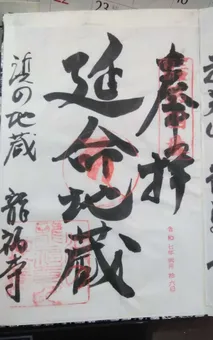 奉拝
延命地蔵
浜の地蔵 龍福寺